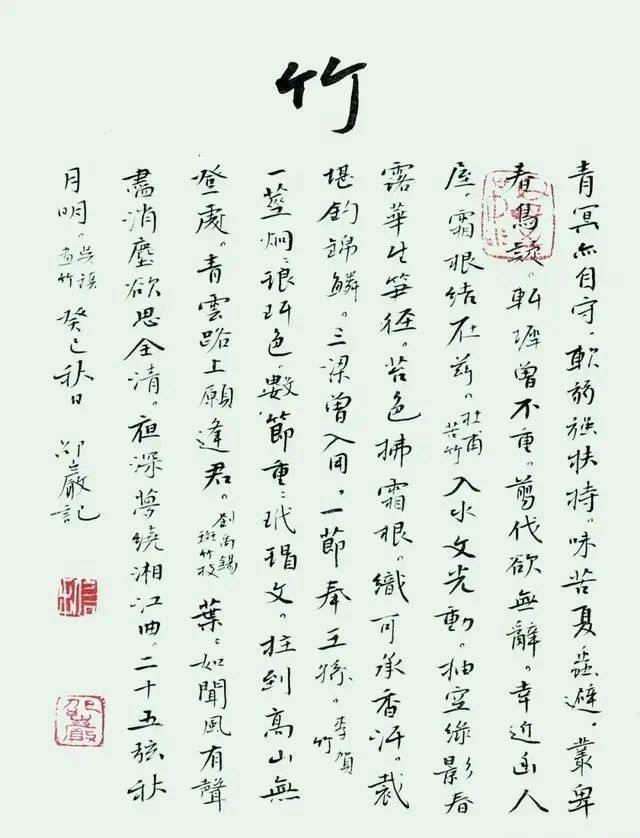 竹
青冥亦自守。軟弱強扶持。味苦夏蟲避。叢卑
春鳥疑。軒墀曾不重。剪伐欲無辭。幸近幽人
屋。霜根結在茲。杜甫苦竹 入水文光動。抽空綠影春
露華生笋徑。苔色拂霜根。織可承香汗。裁
堪釣錦鱗。三梁曾入用。一節奉王孫。李賀竹
一莖炯〻琅玕色。數節重〻玳瑁文。拄到高山無
登處。青雲路上願逢君。劉禹錫斑竹枝 葉〻如聞風有聲
盡消塵欲思全清。夜深夢繞湘江曲。二十五弦秋
月明。吳鎮畫竹 癸巳秋日 邵巖記
邵巖